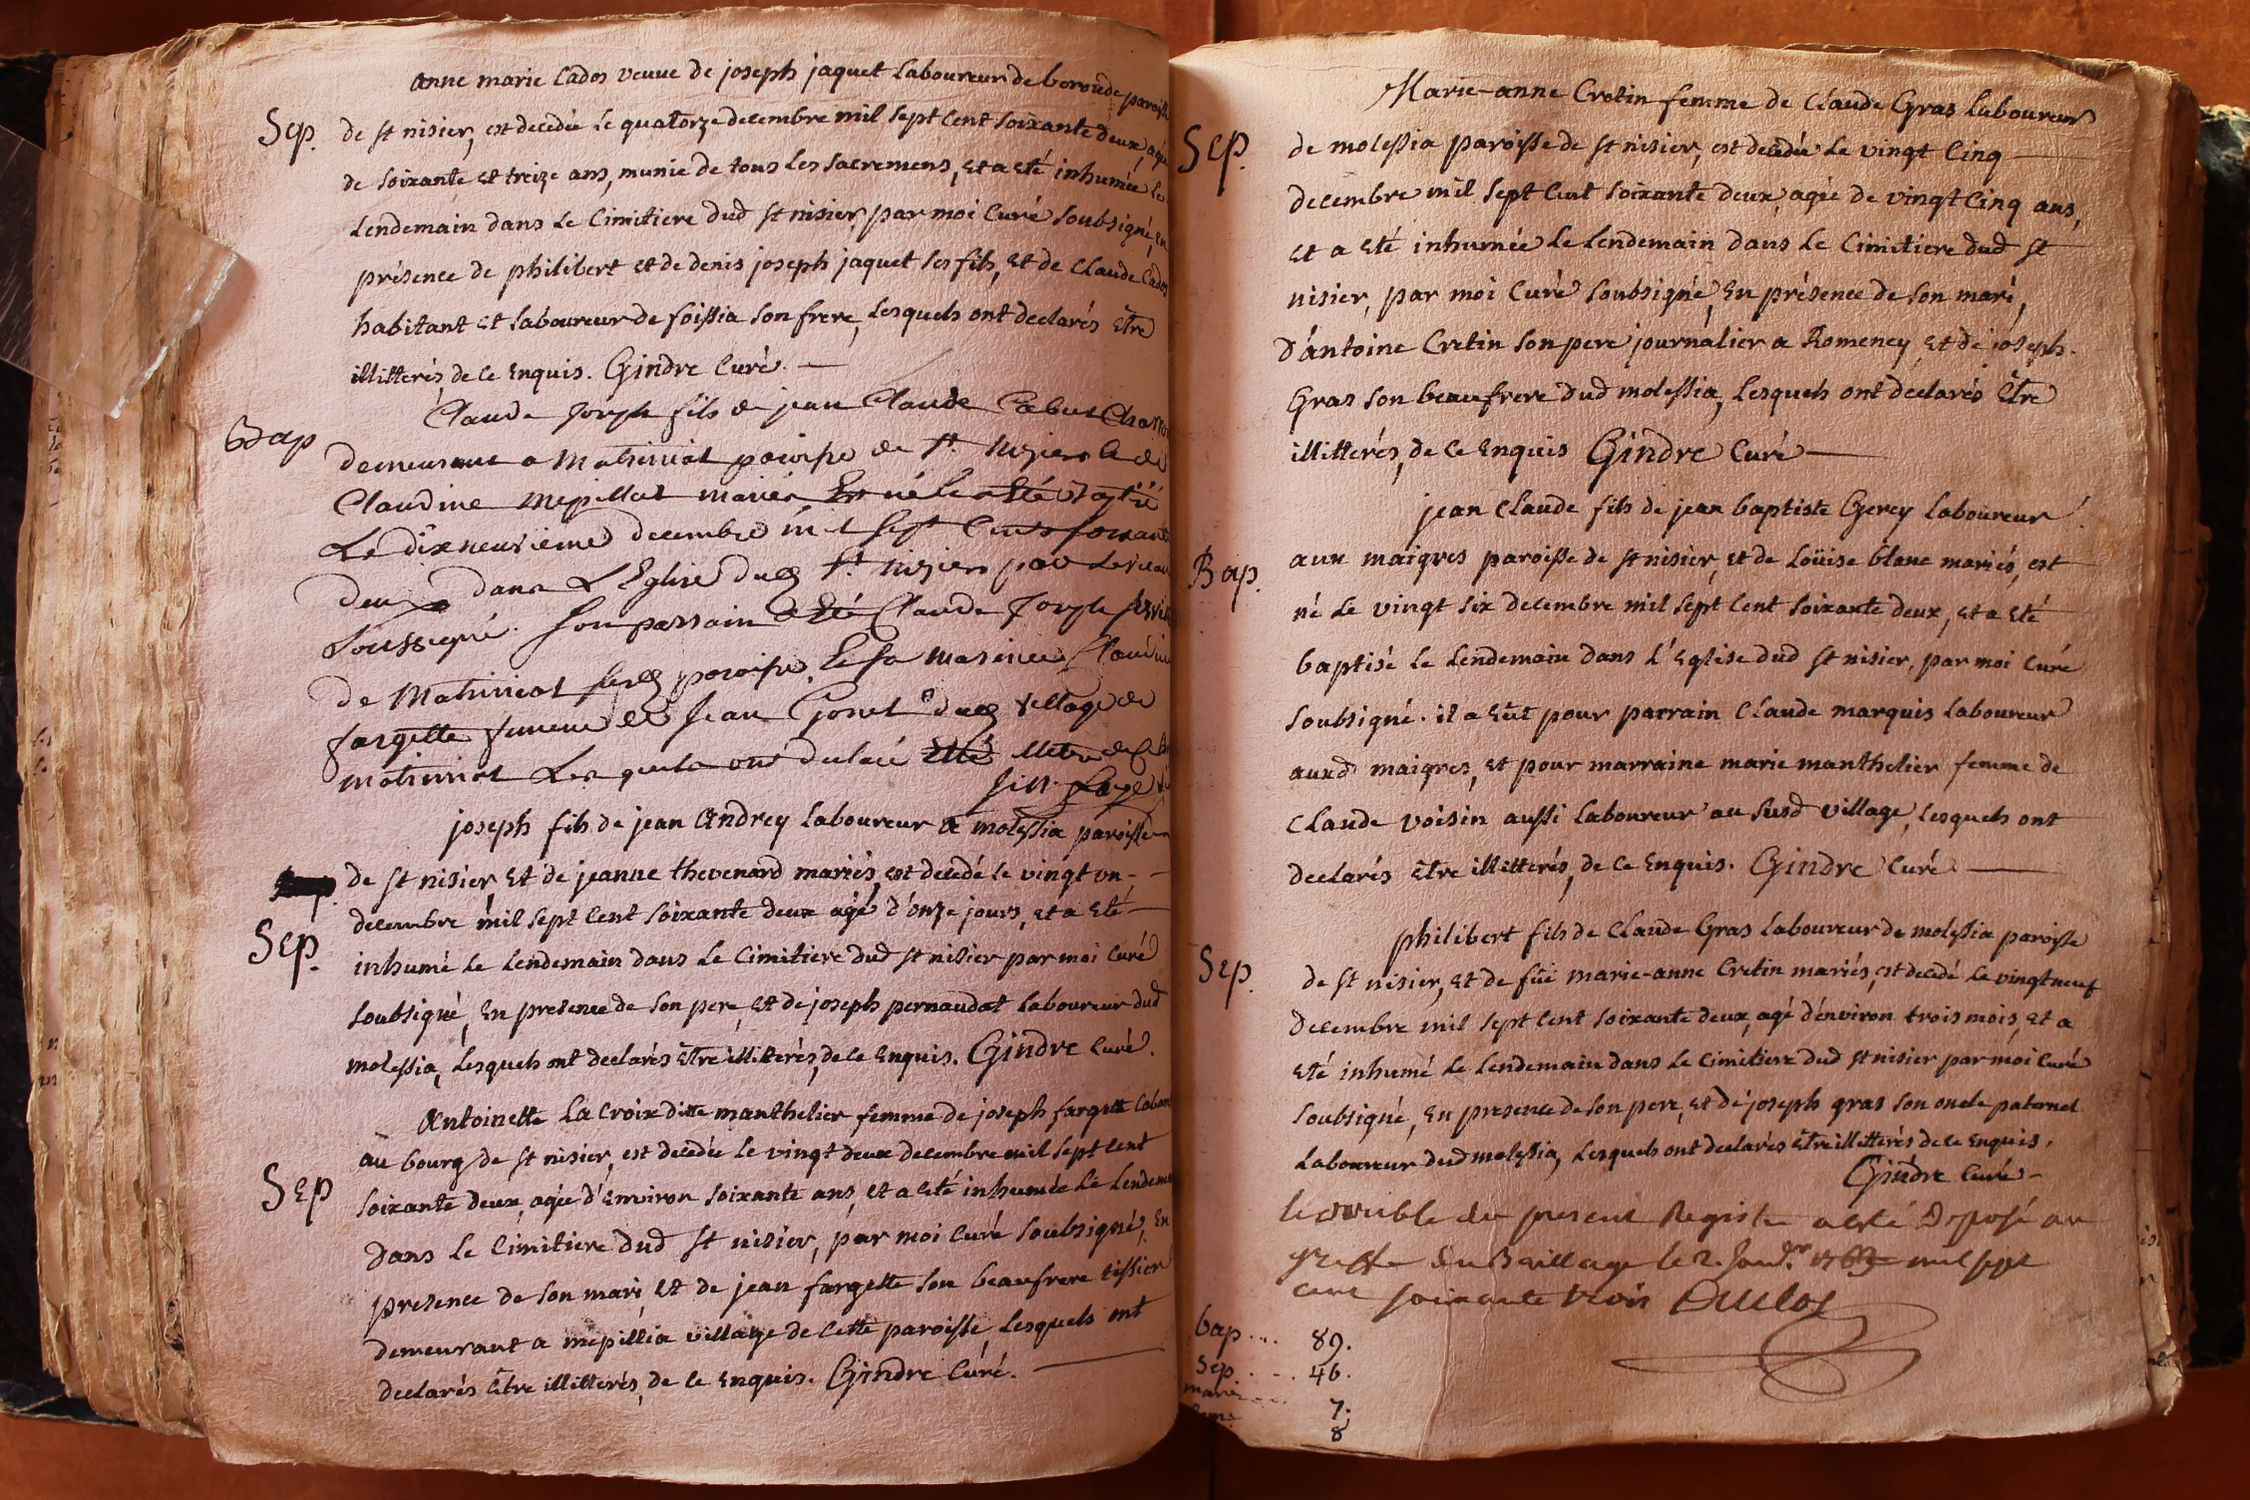 anne marie Cados veuve de joseph jaquet Laboureur de boroude paroisse
Sep. de st nisier, est decedée Le quatorze decembre mil sept cent soixante deux, agée
de soixante et treize ans, munie de tous Les sacremens, et a eté inhumée le
Lendemain dans Le Cimitiere dud st nisier, par moi Curé soubsigné, en
présence de philibert et de denis joseph jaquet ses fils, et de Claude Cados
habitant et Laboureur de foissia son frere, Lesquels ont declarés être
illitterés, de ce enquis. Gindre Curé.
Bap Claude Joseph fils de jean Claude Cabut
demeurant a Matiniat paroisse de st. niziers et de
Claudine mepillat mariés Est né et a Eté
Le dixneuvieme decembre mil sept Cent soixante
deux dans L'Eglise dud st. niziers par le vicaire
soussigné. son parrain a Eté Claude Joseph
de Matiniat susd paroisse, et sa Maraine Claudine
fargette femme de Jean Gonet dud village de
matiniat Lesquels ont declaré
joseph fils de jean Andrey Laboureur a molessia paroisse
de st nisier, et de jeanne thevenard mariés, est decedé le vingt un
Sep. decembre mil sept cent soixante deux agé d'onze jours, et a eté
inhumé Le Lendemain dans Le Cimitiere dud st nisier par moi Curé
soubsigné, en presence de son pere, et de joseph pernaudat Laboureur dud
molessia, Lesquels ont declarés être illitterés, de ce enquis. Gindre Curé.
Antoinette La croix ditte manthelier femme de joseph fargette
au bourg de st nisier, est decedée Le vingt deux decembre mil sept cent
Sep soixante deux, agée d'environ soixante ans, et a eté inhumée Le Lendemain
dans Le Cimitiere dud st nisier, par moi Curé soubsigné, en
presence de son mari, et de jean fargette son beaufrere tissier
demeurant a mepillia village de cette paroisse, Lesquels ont
declarés être illitterés, de ce enquis. Gindre Curé.
Marie-anne Cretin femme de Claude Gras Laboureur
Sep. de molessia paroisse de st nisier, est decedée Le vingt Cinq
decembre mil sept Cent soixante deux, agée de vingt Cinq ans,
et a eté inhumée Le Lendemain dans Le Cimitiere dud st
nisier, par moi Curé soubsigné, en présence de son mari,
d'antoine Cretin son pere journalier a Romeney, et de joseph
Gras son beaufrere dud molessia, Lesquels ont declarés être
illitterés, de ce enquis Gindre Curé
jean Claude fils de jean baptiste Gerey Laboureur
Bap. aux maigres paroisse de st nisier, et de Loüise blanc mariés, est
né Le vingt six decembre mil sept cent soixante deux, et a eté
baptisé Le Lendemain dans L'Eglise dud st nisier, par moi Curé
soubsigné. il a eut pour parrain Claude marquis Laboureur
auxd maigres, et pour marraine marie manthelier femme de
Claude voisin aussi Laboureur au susd village, Lesquels ont
declarés être illitterés, de ce enquis. Gindre Curé
philibert fils de Claude Gras Laboureur de molessia paroisse
Sep. de st nisier, et de füe marie-anne Cretin mariés, est decedé Le vingt neuf
decembre mil sept cent soixante deux, agé d'environ trois mois, et a
eté inhumé Le Lendemain dans Le Cimitiere dud st nisier par moi Curé
soubsigné, en presence de son pere, et de joseph gras son oncle paternel
Laboureur dud molessia, Lesquels ont declarés être illitterés de ce enquis.
Gindre Curé
le double du present Registre a esté Deposé au
greffe du Bailliage le 2. Janv.er 1763 mil sept
cent soixante trois Duclos
bap.... 89.
Sep.... 46.
mari.... 7.
8